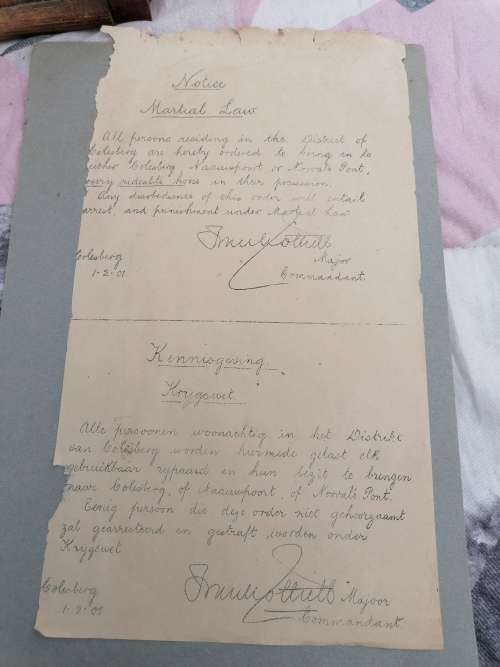 Notice
Martial Law
All persons residing in the District of
Colesberg are hereby ordered to bring in to
either Colesberg Naauwpoort or Norvals Pont,
every rideable horse in their possession.
Any disobedience of this order will entail
arrest, and punishment under Martial Law
Major
Colesberg
1-2-01
Commandant.
Kennisgeving.
Krygswet.
Alle persoonen woonachtig in het Distrikt
van Colesberg worden hiermede gelast elk
gebruikbaar rypaard en hun bezit te brengen
naar Colesberg, of Naauwpoort, of Norvals Pont.
Eenig persoon die deze order niet gehoorzaamt
zal gearresteerd en gestraft worden onder
Krygswet
Colesberg
Majoor
1-2-01
Commandant.